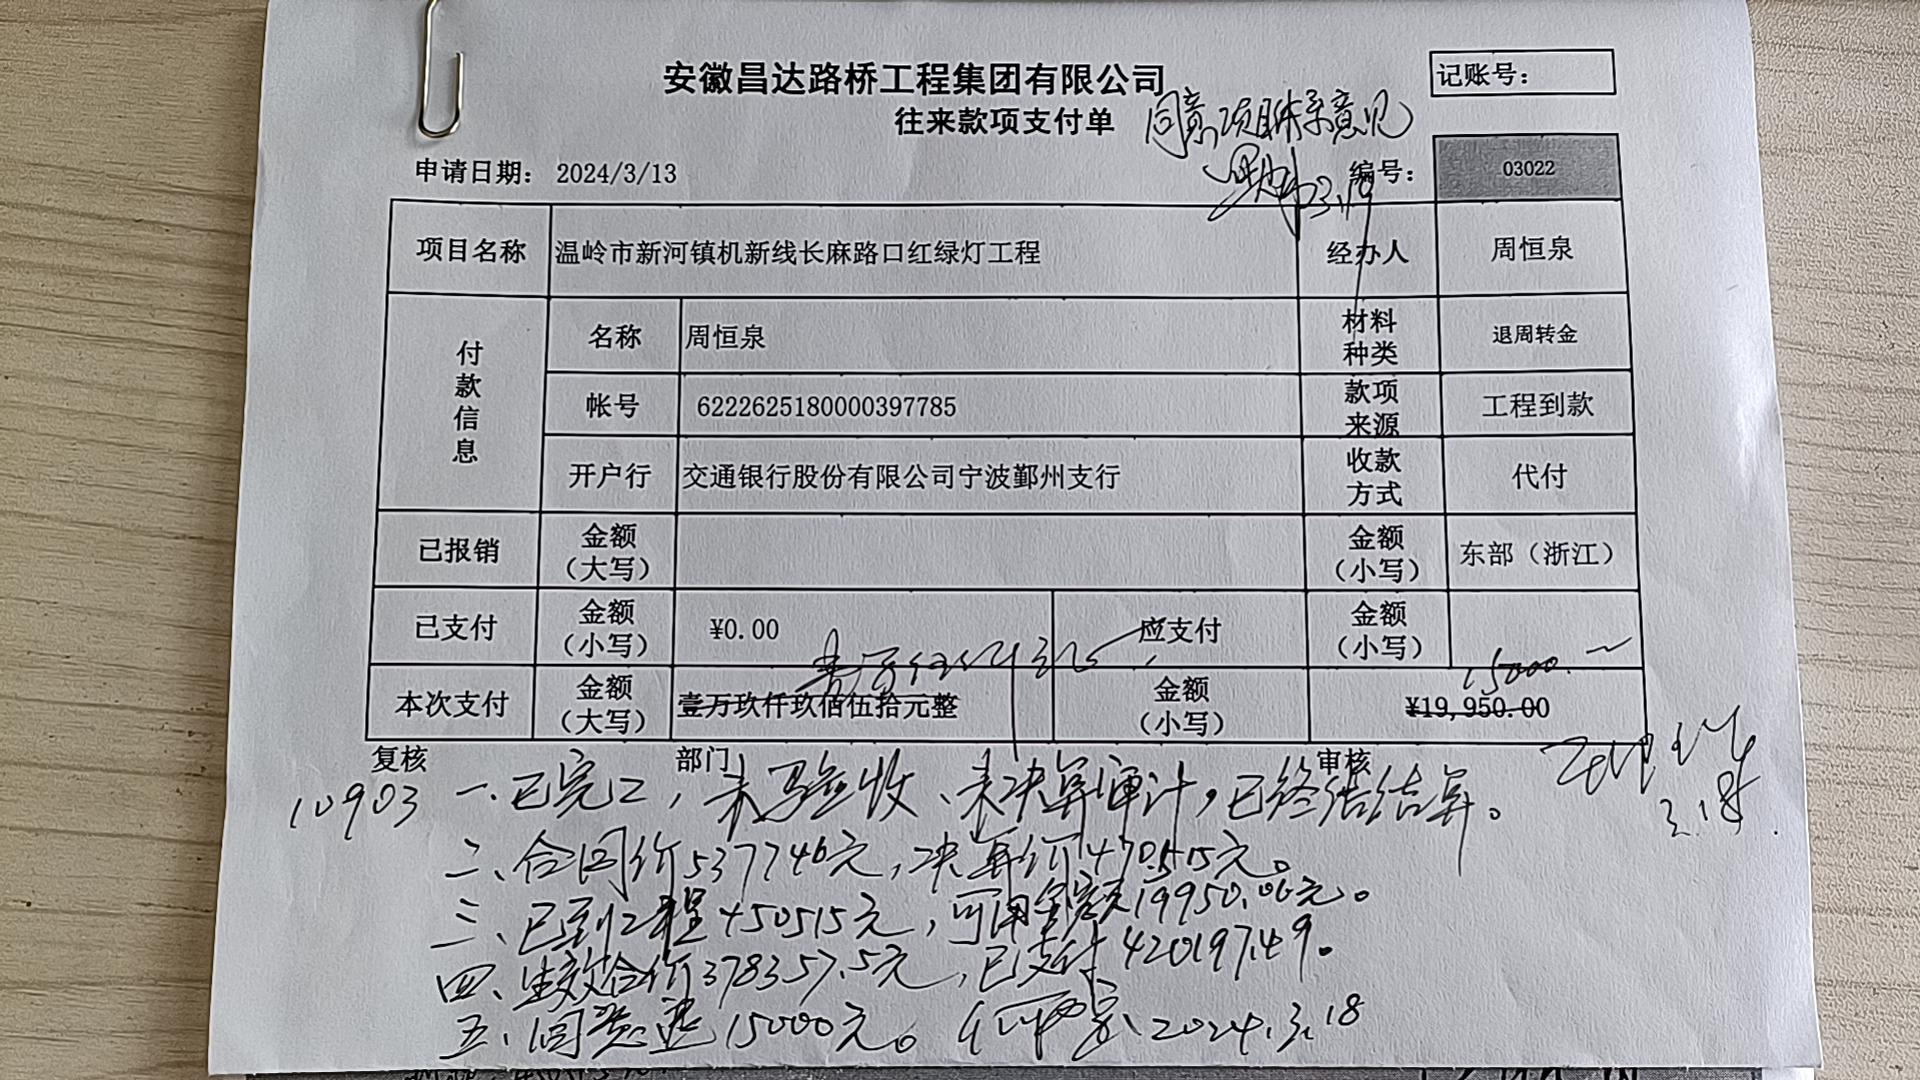 安徽昌达路桥工程集团有限公司
记账号：
往来款项支付单
同意项联系意见
申请日期： 2024/3/13
编号： 03022
3.19
项目名称 温岭市新河镇机新线长麻路口红绿灯工程 经办人 周恒泉
付款信息 名称 周恒泉 材料种类 退周转金
帐号 6222625180000397785 款项来源 工程到款
开户行 交通银行股份有限公司宁波鄞州支行 收款方式 代付
已报销 金额（大写） 金额（小写） 东部（浙江）
已支付 金额（小写） ¥0.00 应支付 金额（小写）
壹万伍仟元 15000.
本次支付 金额（大写） 壹万玖仟玖佰伍拾元整 金额（小写） ¥19,950.00
复核 部门 审核
3.18.
10903 一、已完工，未验收、未决算审计，已终结结算。
二、合同价537746元，决算价470515元。
三、已到工程450515元，可用金额19950.06元。
四、生效合价378357.5元，已支付420197.49。
五、同意退15000元。 2024.3.18